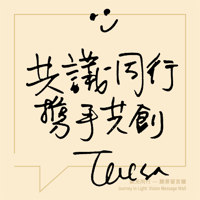 共議同行
携手共創
Teresa
Journey in Light: Vision Message Wall